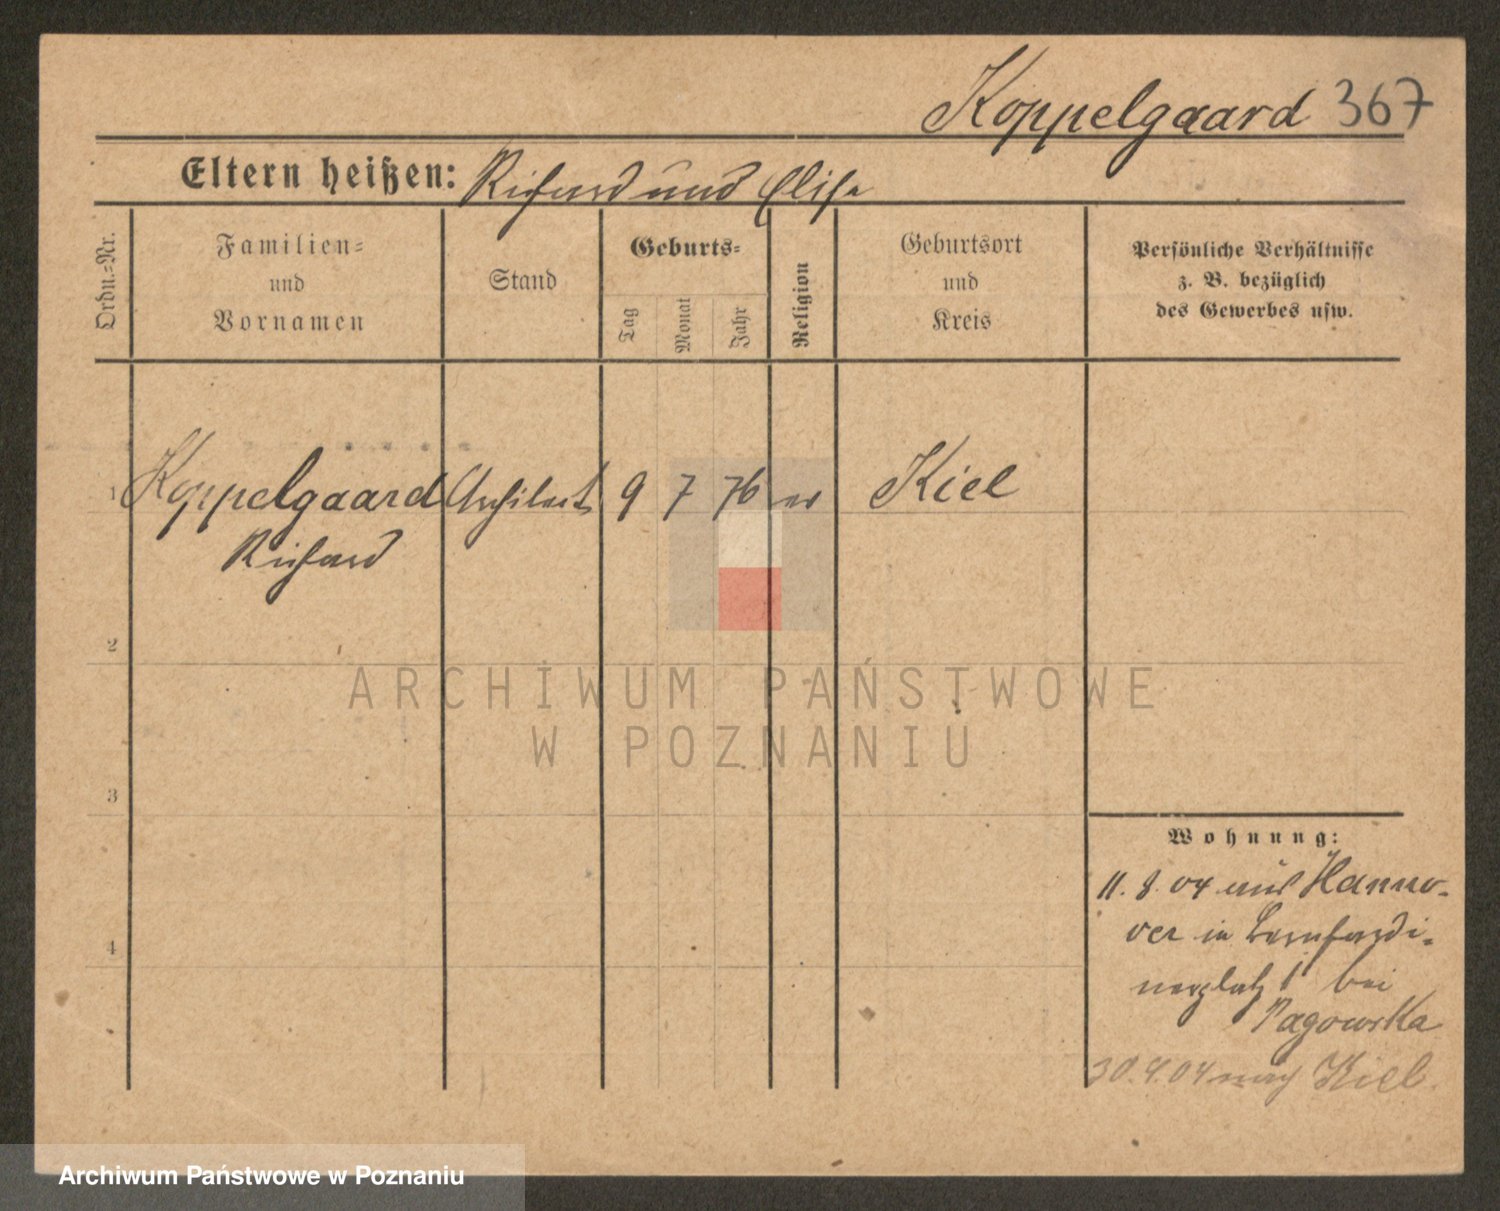 Koppelgaard 367
Eltern heißen: Richard und Elise
Ordn.-Nr.
Familien-
und
Vornamen
Stand
Geburts-
Tag
Monat
Jahr
Religion
Geburtsort
und
Kreis
Persönliche Verhältnisse
z. B. bezüglich
des Gewerbes usw.
1 Koppelgaard Architect 9 7 76 ev Kiel
Richard
2
3
4
Wohnung:
11. 3. 04 aus Hanno-
ver in Bernhardi-
nerplatz 1 bei
Pagowska
30.4.04 nach Kiel.
ARCHIWUM PAŃSTWOWE
W POZNANIU
Archiwum Państwowe w Poznaniu